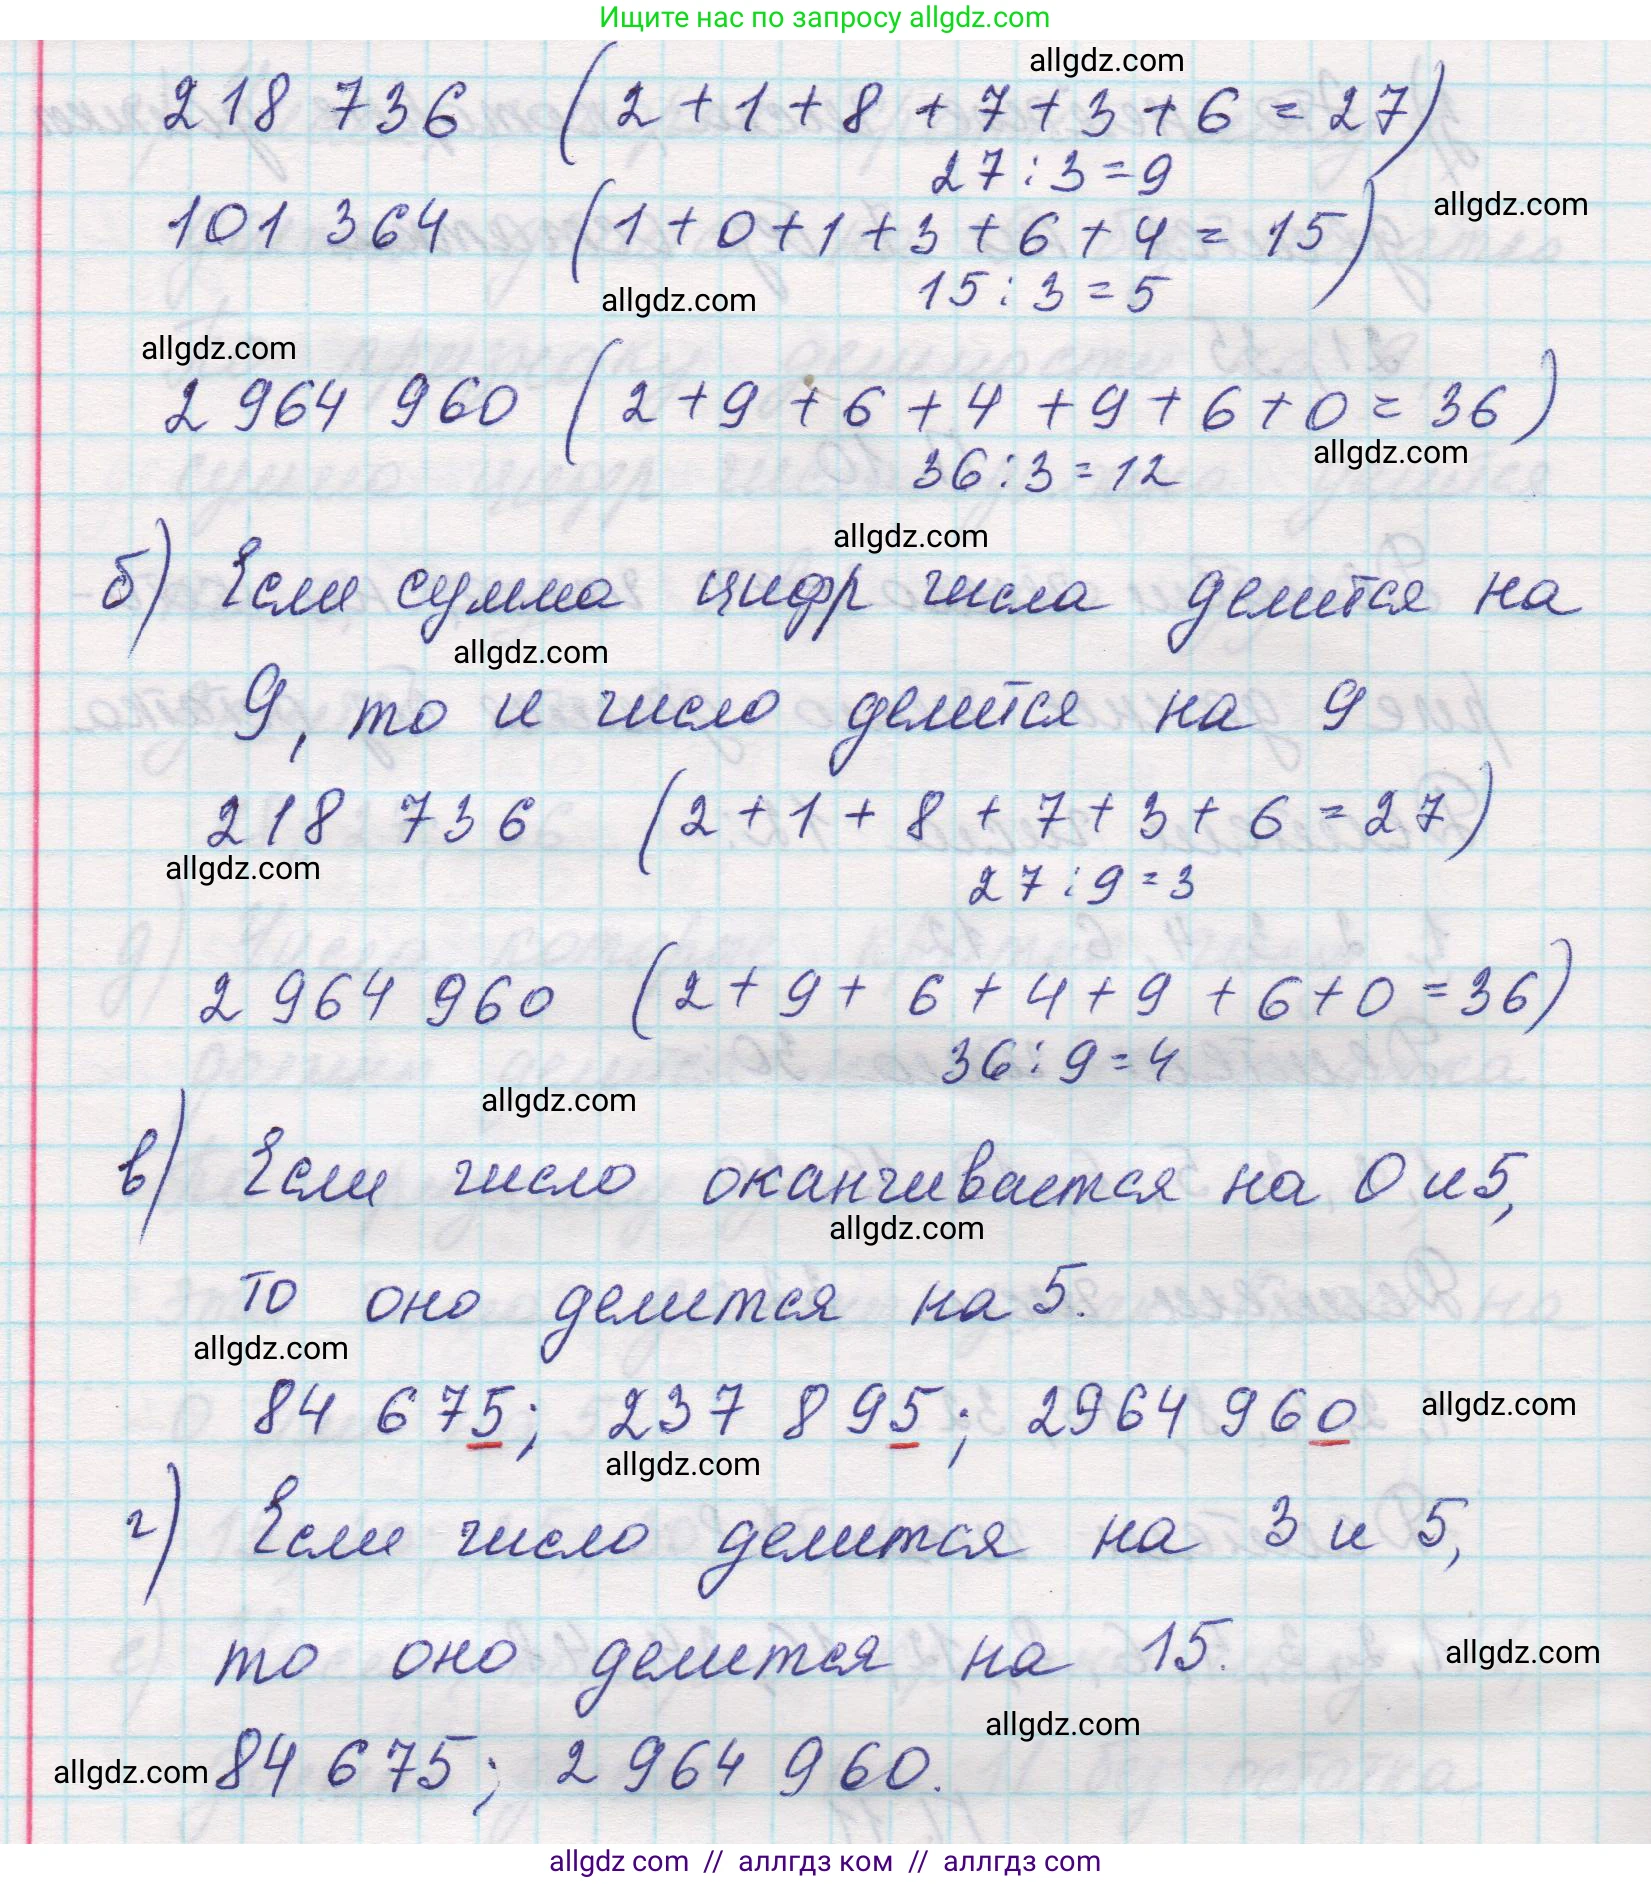 Ищите нас по запросу allgdz.com
allgdz.com
218 736 (2+1+8+7+3+6=27)
27:3=9
allgdz.com
101 364 (1+0+1+3+6+4=15)
15:3=5
allgdz.com
allgdz.com
2 964 960 (2+9+6+4+9+6+0=36)
allgdz.com
36:3=12
allgdz.com
б) Если сумма цифр числа делится на
allgdz.com
9, то и число делится на 9
218 736 (2+1+8+7+3+6=27)
allgdz.com
27:9=3
2 964 960 (2+9+6+4+9+6+0=36)
36:9=4
allgdz.com
в) Если число оканчивается на 0 и 5,
allgdz.com
то оно делится на 5.
allgdz.com
84 675; 237 895; 2964 960
allgdz.com
allgdz.com
г) Если число делится на 3 и 5,
то оно делится на 15.
allgdz.com
allgdz.com
allgdz.com
84 675; 2 964 960.
allgdz com // аллгдз ком // аллгдз com